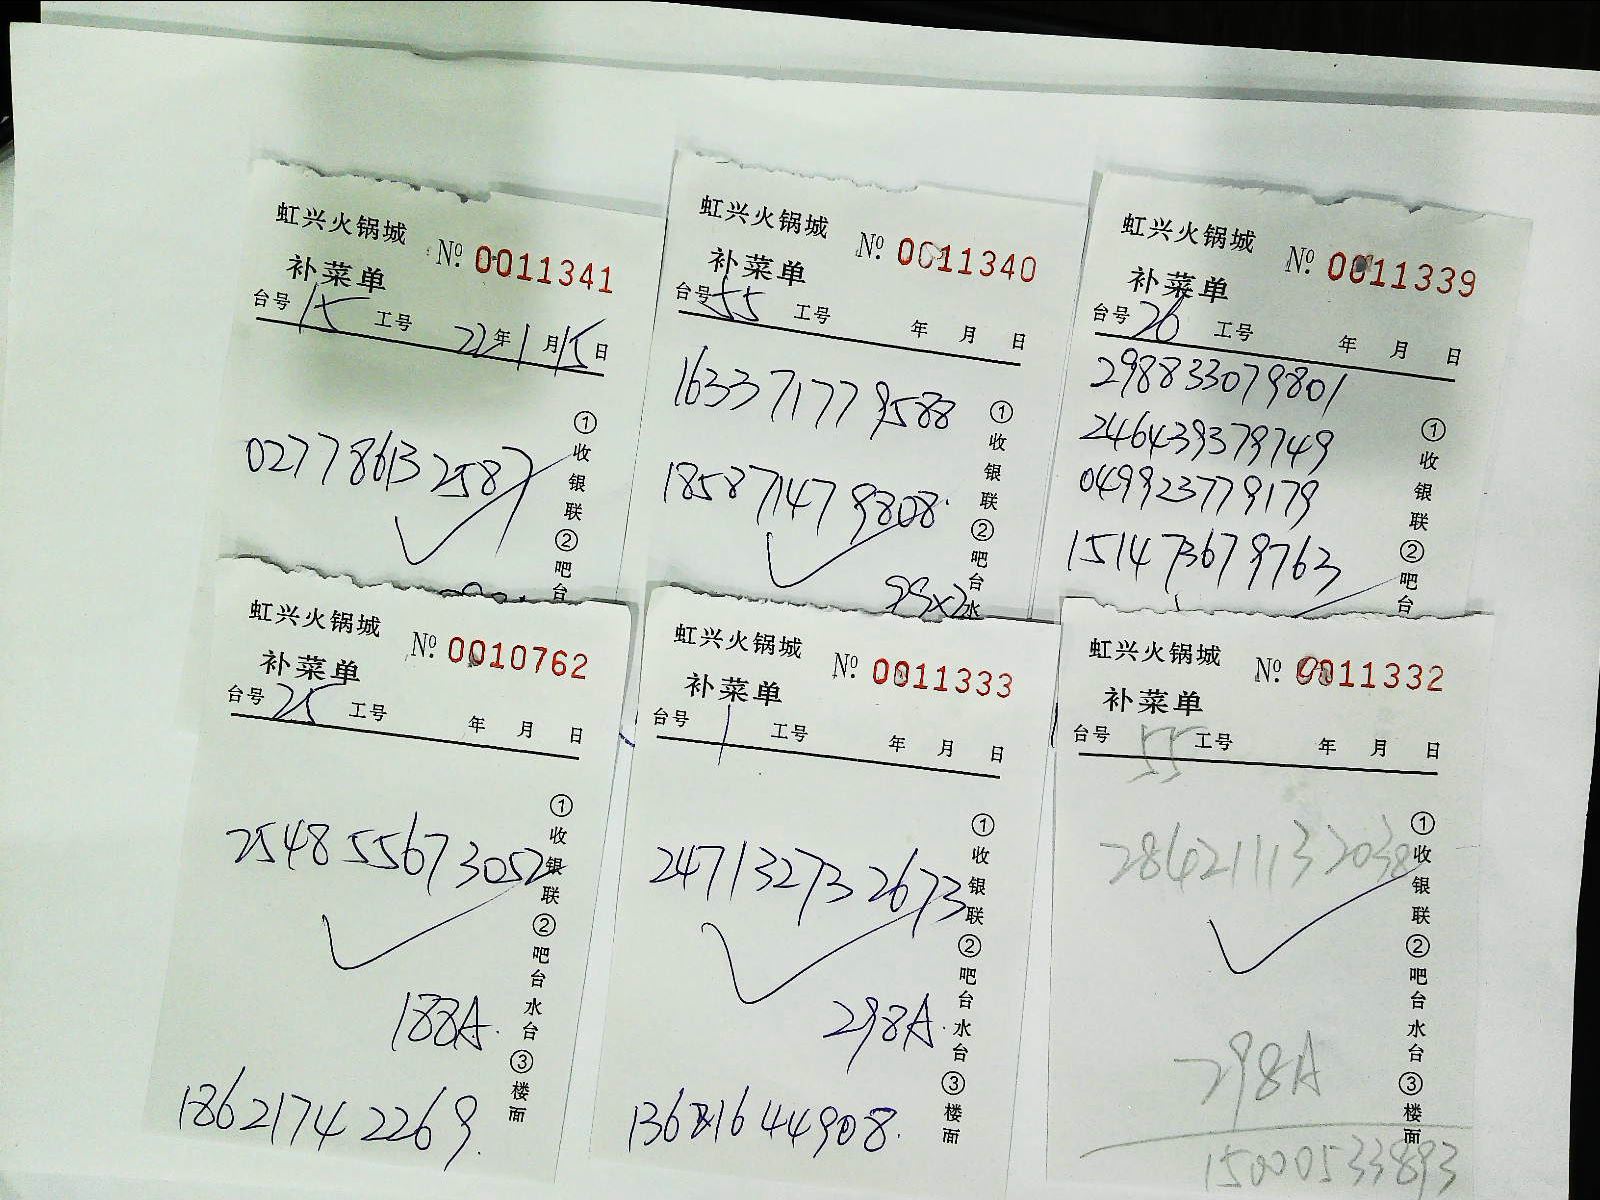 虹兴火锅城 №. 0011341
补菜单
台号 15 工号 22年1月15日
027786132587
①收银联②吧台
虹兴火锅城 №. 0011340
补菜单
台号 55 工号 年 月 日
163371779588
185871479808.
99×2
①收银联②吧台水
虹兴火锅城 №. 0011339
补菜单
台号 26 工号 年 月 日
298833079801
246439379749
049923779179
151473679763
①收银联②吧台
虹兴火锅城 №. 0010762
补菜单
台号 25 工号 年 月 日
254855673052
188A.
18621742269.
①收银联②吧台水台③楼面
虹兴火锅城 №. 0011333
补菜单
台号 1 工号 年 月 日
247132732673
298A.
①收银联②吧台水台③楼面
虹兴火锅城 №. 0011332
补菜单
台号 55 工号 年 月 日
284211132038
298A
15000533893
①收银联②吧台水台③楼面